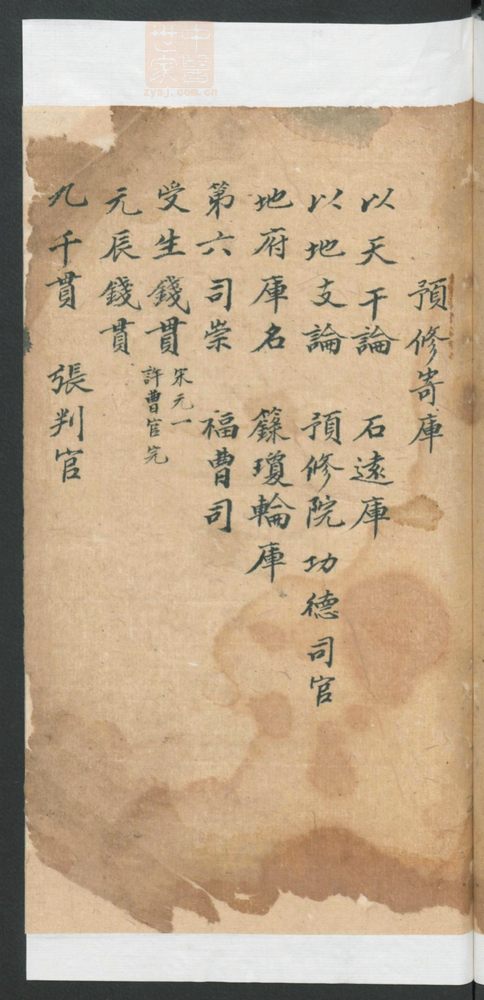 預修寄庫
以天干論 石遠庫
以地支論 預修院功德司官
地府庫名 籙瓊輪庫
第六司崇 福曹司
受生錢貫 宋元一
許曹官完
元辰錢貫
九千貫 張判官
中醫世家
zysj.com.cn